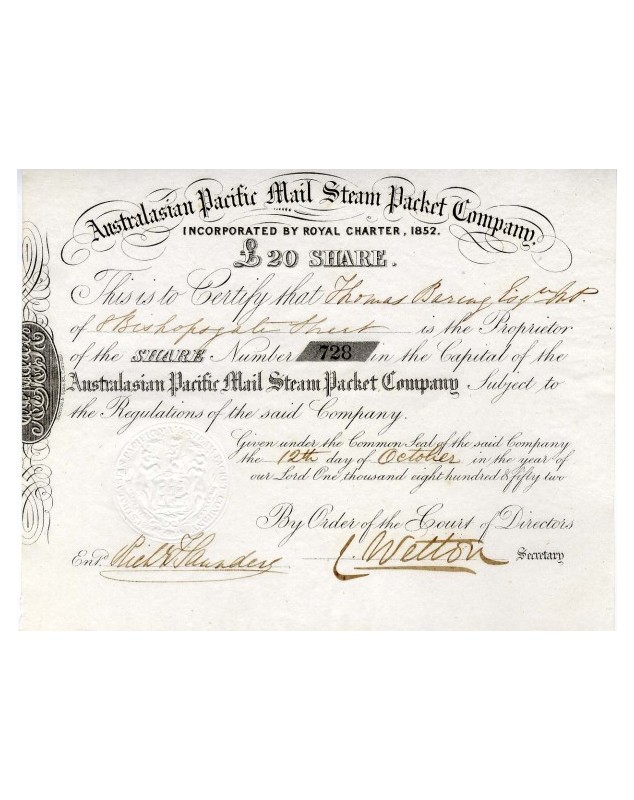 Australasian Pacific Mail Steam Packet Company.
INCORPORATED BY ROYAL CHARTER, 1852.
£20 SHARE.
This is to Certify that Thomas Baring Esqre
of 8 Bishopsgate Street is the Proprietor
of the SHARE Number 728 in the Capital of the
Australasian Pacific Mail Steam Packet Company Subject to
the Regulations of the said Company.
Given under the Common Seal of the said Company
the 12th day of October in the year of
our Lord One thousand eight hundred & fifty two
By Order of the Court of Directors
Entd. Richd Saunders Wetton Secretary